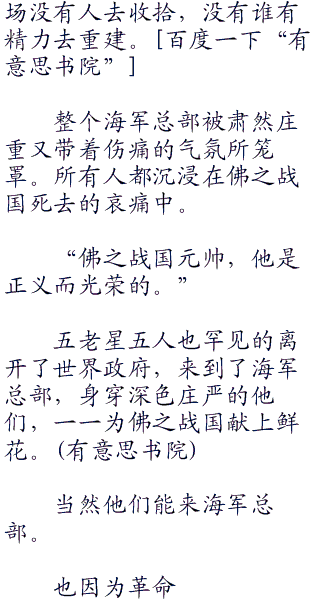 场没有人去收拾，没有谁有
精力去重建。[百度一下“有
意思书院”]
整个海军总部被肃然庄
重又带着伤痛的气氛所笼
罩。所有人都沉浸在佛之战
国死去的哀痛中。
“佛之战国元帅，他是
正义而光荣的。”
五老星五人也罕见的离
开了世界政府，来到了海军
总部，身穿深色庄严的他
们，一一为佛之战国献上鲜
花。(有意思书院)
当然他们能来海军总
部。
也因为革命